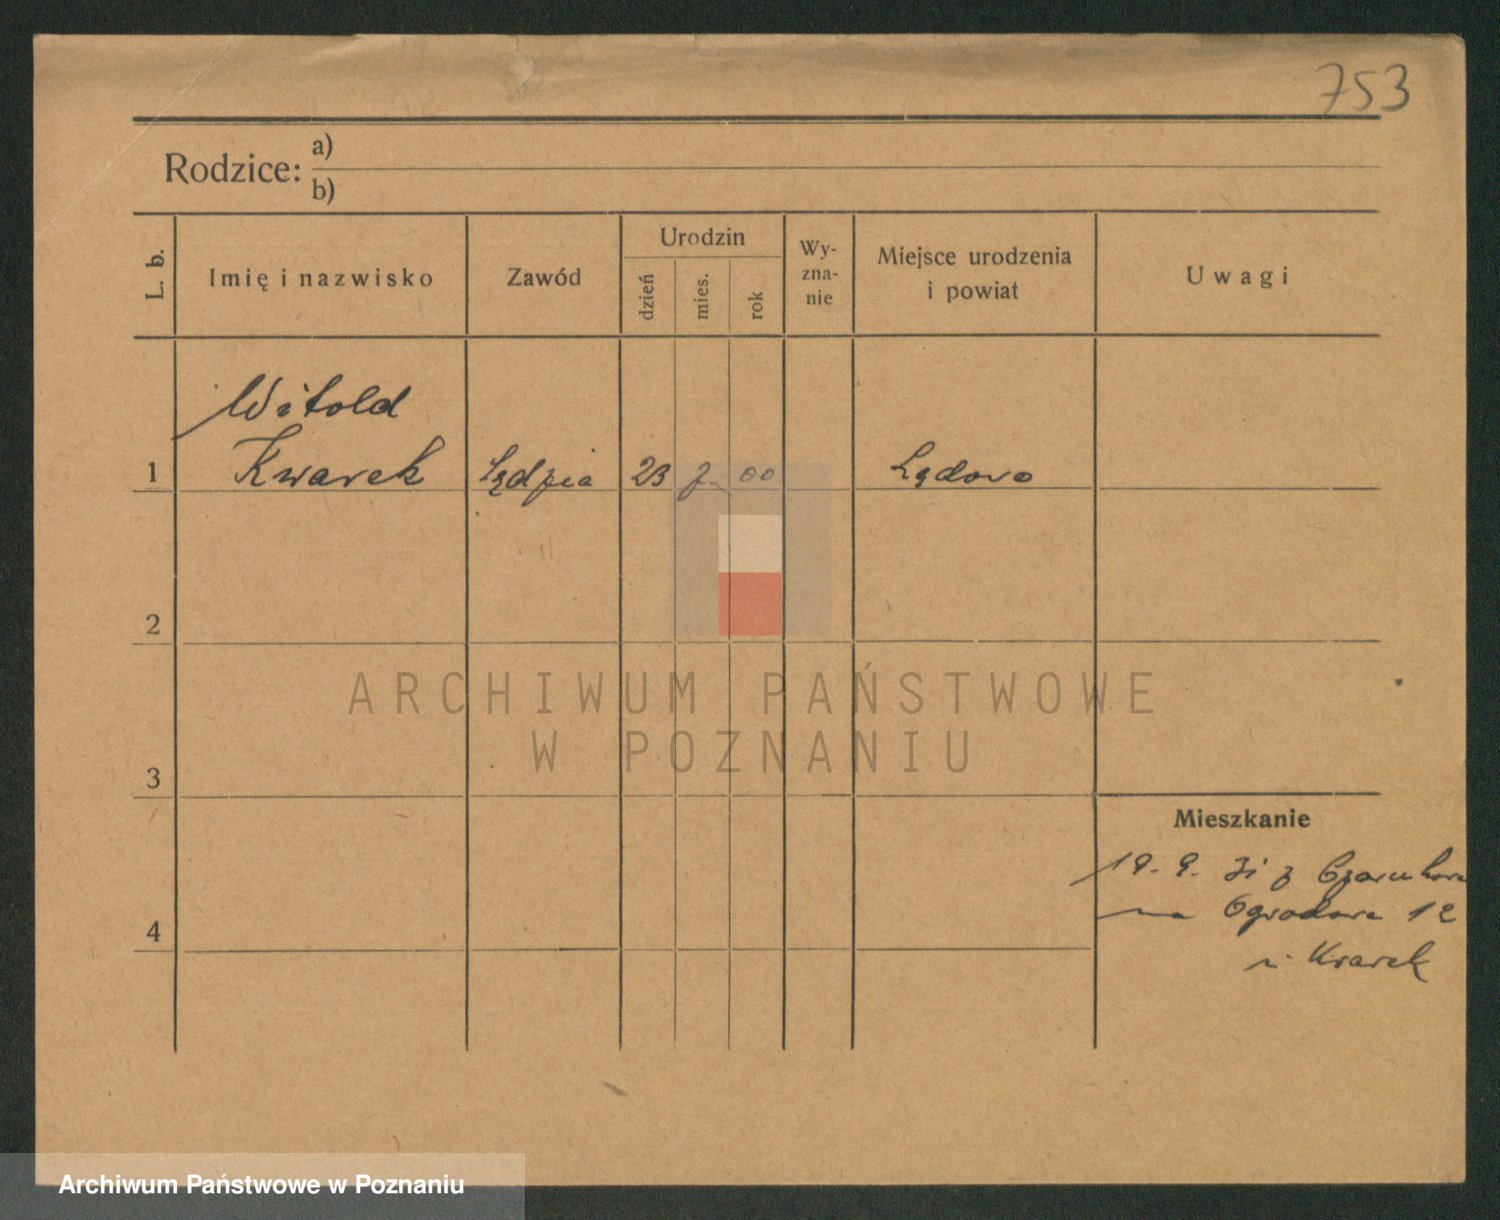 753
Rodzice: a)
b)
L. b.
Imię i nazwisko
Zawód
Urodzin
dzień
mies.
rok
Wy-
zna-
nie
Miejsce urodzenia
i powiat
Uwagi
Witold
1 Kwarek Sędzia 23 00
2
3
4
Mieszkanie
19. 9. 31 z
na Ogrodowa 12
Kwarek
ARCHIWUM PAŃSTWOWE
W POZNANIU
Archiwum Państwowe w Poznaniu